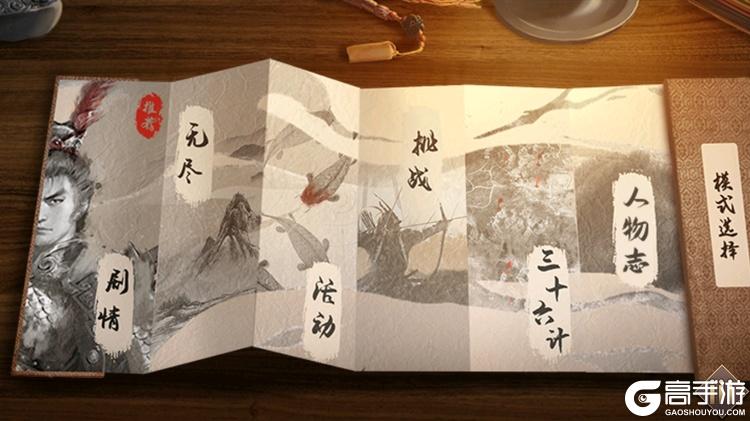 推荐
剧情
无尽
活动
挑战
三十六计
人物志
模式选择
高手游
GAOSHOUYOU.COM